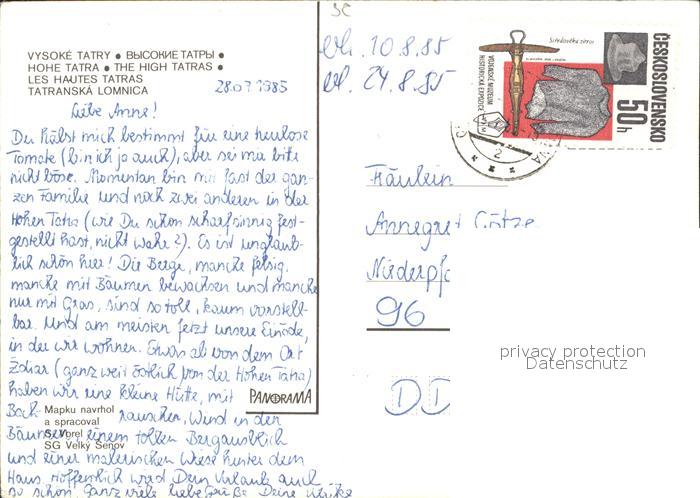 VYSOKÉ TATRY ● ВЫСОКИЕ ТАТРЫ ●
HOHE TATRA ● THE HIGH TATRAS ●
LES HAUTES TATRAS
TATRANSKÁ LOMNICA
28.07.1985
Liebe Anne!
Du hälst mich bestimmt für eine treulose
Tomate (bin ich ja auch), aber sei mir bitte
nicht böse. Momentan bin mit fast der gan-
zen Familie und noch zwei anderen in der
Hohen Tatra (wie Du schon scharfsinnig fest-
gestellt hast, nicht wahr?). Es ist unglaub-
lich schön hier! Die Berge, manche felsig,
manche mit Bäumen bewachsen und manche
nur mit Gras, sind so toll, kaum vorstell-
bar. Und am meisten fetzt unsere Einöde,
in der wir wohnen. Etwas ab von dem Ort
Ždiar (ganz weit östlich von der Hohen Tatra)
haben wir eine kleine Hütte, mit
Bach- rauschen, Wind in den
Bäumen, einem tollen Bergausblick
und einer malerischen Wiese hinter dem
Haus. Hoffentlich wird Dein Urlaub auch
so schön. Ganz viele liebe Grüße Deine Ulrike
Mapku navrhol
a spracoval
S. Vorel
SG Velký Šenov
PANORAMA
10.8.85
24.8.85
Středověká zbroj
VOJENSKÉ MUZEUM
HISTORICKÁ EXPOZICE
ČESKOSLOVENSKO
50h
2
Fräulein
Annegret Götze
Niederpfa
96
DD
privacy protection
Datenschutz